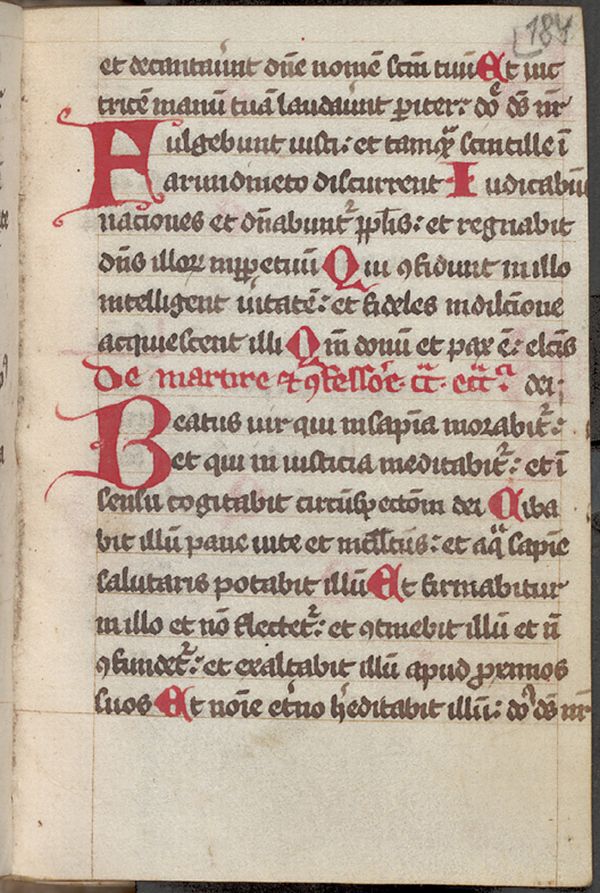 184
et decantauͬnt dn̄e nomē scm̄ tuū Et uic
tricē manū tuā laudauͬnt pariter: do᷒ ds̄ nr̄
Fulgebunt iusti: et tamqͣ scintille ī
arundineto discurrent Iudicabūt
nac̄iones et dn̄abuntᷣ ppl̄is: et regnabit
dn̄s illoꝝ inꝑpetuū Qui ꝯfidunt in illo
intelligent uͥitatē: et fideles indilcīone
acquiescent illi Qm̄ donū et pax ē: elcīs
De martire ꝛ ꝯfessoͬe. dei:
Beatus uir qui insapīa morabitᷣ:
et qui in iusticia meditabitᷣ: et ī
sensu cogitabit circūspectōm dei Ciba
bit illū pane uite et intell̄cūs: et aqͣ sapīe
salutaris potabit illū Et firmabitur
in illo et nō flectetᷣ: et ꝯtinebit illū et n̄
ꝯfundetᷣ: et exaltabit illū apud ꝓximos
suos Et noīe etͬno hͤeditabit illū: do᷒ ds̄ nr̄